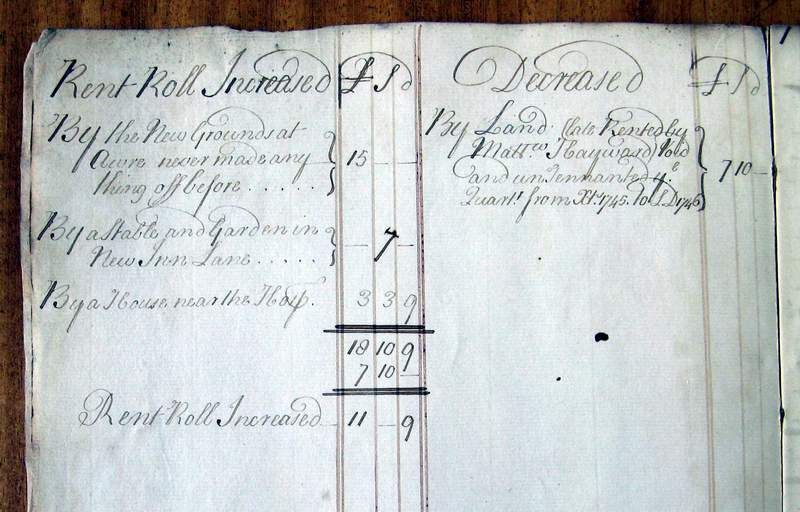 Rent Roll Increased £ S d
By the New Grounds at
Awre never made any
thing off before . . . . . . 15 — —
By a Stable and Garden in
New Inn Lane . . . . . . — 7 —
By a House near the Hosp.l 3 3 9
18 10 9
7 10 —
Rent Roll Increased 11 — 9
Decreased £ S d
By Land (late Rented by
Matt.w Hayward) Void
and untennanted y.e
Quart.r from Xt.s 1745. to L D 1746 7 10 —